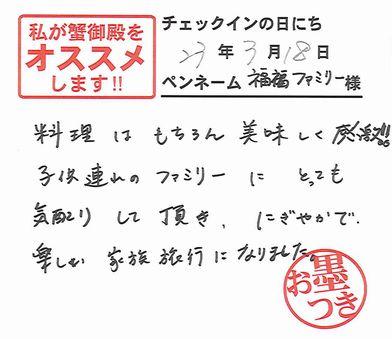 私が蟹御殿を
オススメ
します!!
チェックインの日にち
23年3月18日
ペンネーム 福福ファミリー様
料理はもちろん美味しく感激!!
子供連れのファミリーにとっても
気配りして頂き、にぎやかで
楽しい家族旅行になりました。
お墨つき